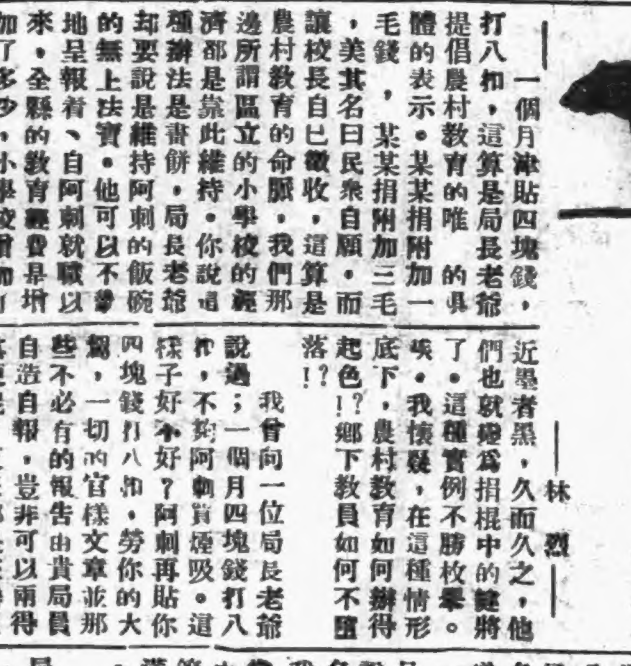 一個月津貼四塊錢，
打八扣，這算是局長老爺
提倡農村教育的唯　的具
體的表示。某某捐附加一
毛錢，某某捐附加三毛
，美其名曰民衆自願。而
讓校長自已徵收，這算是
農村教育的命脈，我們那
邊所謂區立的小學校的經
濟都是靠此維持。你說這
種辦法是畫餅，局長老爺
却要說是維持阿刺的飯碗
的無上法寶。他可以不
地呈報着、自阿刺就職以
來，全縣的教育經費是增
加了多少，小學校增加
林烈
近墨者黑，久而久之，他
們也就變爲捐棍中的健將
了。這種實例不勝枚舉。
唉。我懷疑，在這種情形
底下，農村教育如何辦得
起色！？鄉下教員如何不墮
落！？
我曾向一位局長老爺
說過；一個月四塊錢打八
扣，不夠阿刺買煙吸。這
樣子好不好？阿刺再貼你
四塊錢打八扣，勞你的大
駕，一切的官樣文章並那
些不必有的報告由貴局員
自造自報，豈非可以兩得